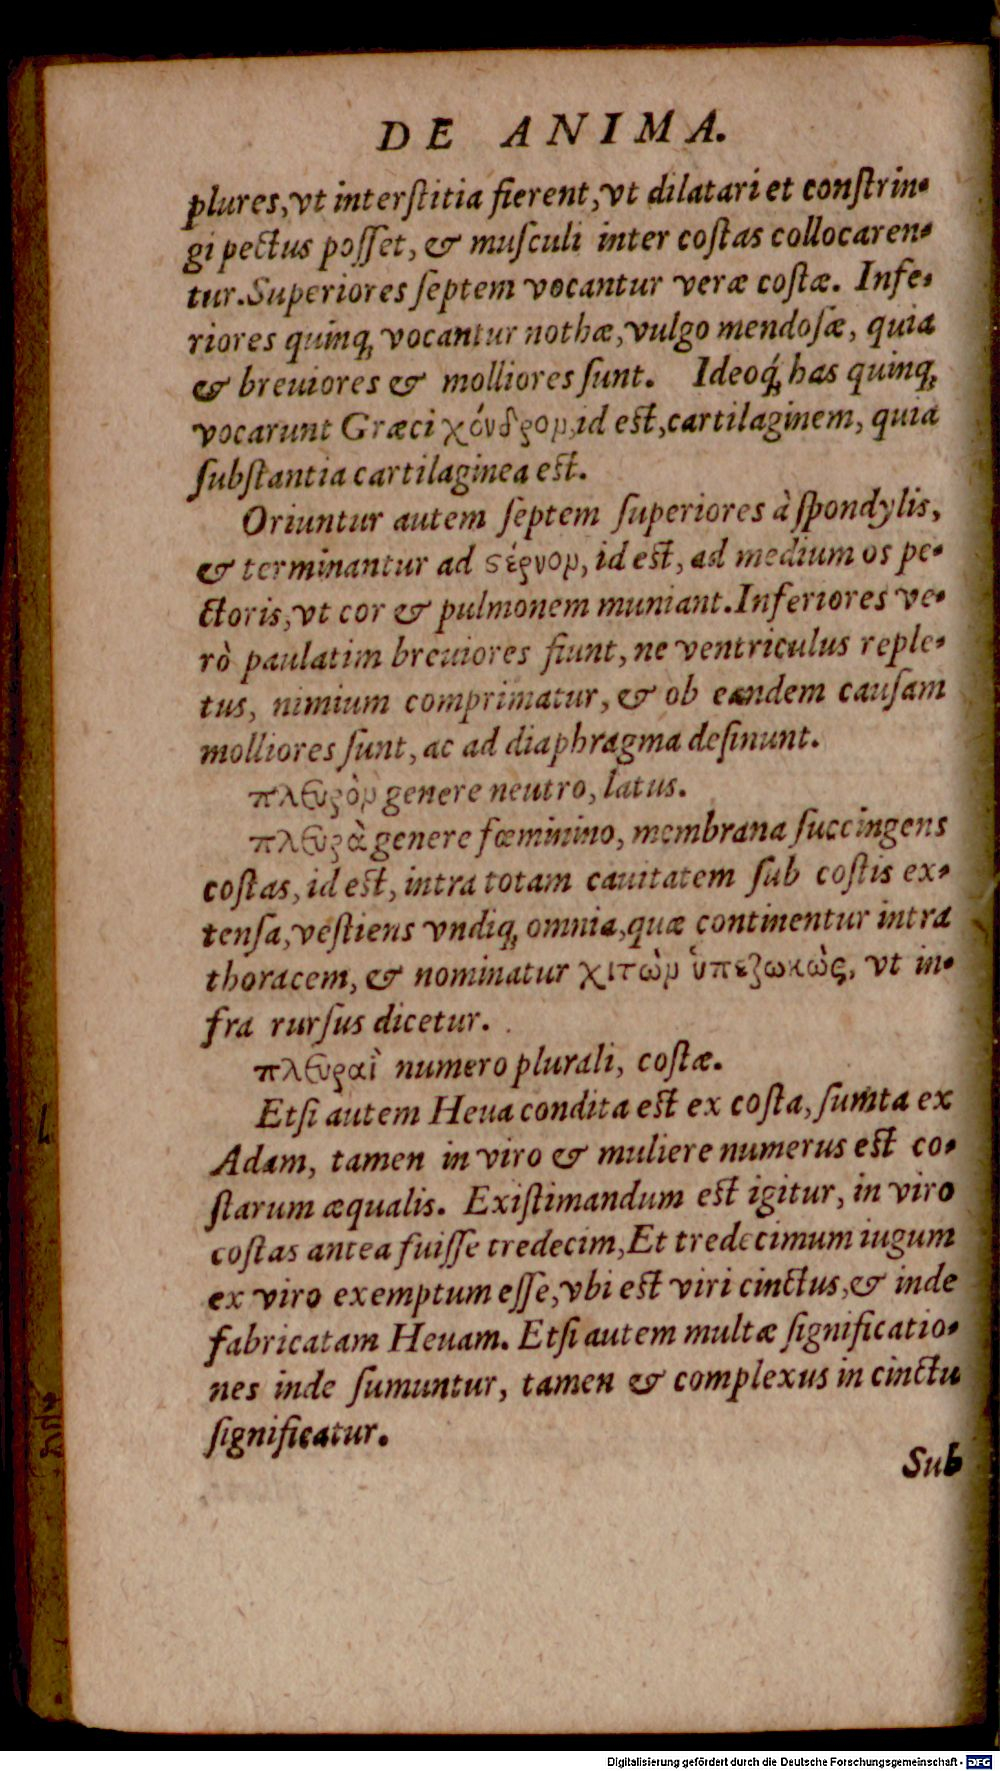 DE ANIMA.
plures, vt interſtitia fierent, vt dilatari et conſtrin-
gi pectus poſſet, & muſculi inter coſtas collocaren-
tur. Superiores ſeptem vocantur veræ coſtæ. Infe-
riores quinq; vocantur nothæ, vulgo mendoſæ, quia
& breuiores & molliores ſunt. Ideoq́; has quinq;
vocarunt Græci χόνδρον, id eſt, cartilaginem, quia
ſubſtantia cartilaginea eſt.
Oriuntur autem ſeptem ſuperiores à ſpondylis,
& terminantur ad ϛέρνον, id eſt, ad medium os pe-
ctoris, vt cor & pulmonem muniant. Inferiores ve-
rò paulatim breuiores fiunt, ne ventriculus reple-
tus, nimium comprimatur, & ob eandem cauſam
molliores ſunt, ac ad diaphragma deſinunt.
πλευρὸν genere neutro, latus.
πλευρὰ genere fœminino, membrana ſuccingens
coſtas, id eſt, intra totam cauitatem ſub coſtis ex-
tenſa, veſtiens vndiq; omnia, quæ continentur intra
thoracem, & nominatur χιτὼν ὑπεζωκὼς, vt in-
fra rurſus dicetur.
πλευραὶ numero plurali, coſtæ.
Etſi autem Heua condita eſt ex coſta, ſumta ex
Adam, tamen in viro & muliere numerus eſt co-
ſtarum æqualis. Exiſtimandum eſt igitur, in viro
coſtas antea fuiſſe tredecim, Et tredecimum iugum
ex viro exemptum eſſe, vbi eſt viri cinctus, & inde
fabricatam Heuam. Etſi autem multæ ſignificatio-
nes inde ſumuntur, tamen & complexus in cinctu
ſignificatur.
Sub
Digitalisierung gefördert durch die Deutsche Forschungsgemeinschaft - DFG